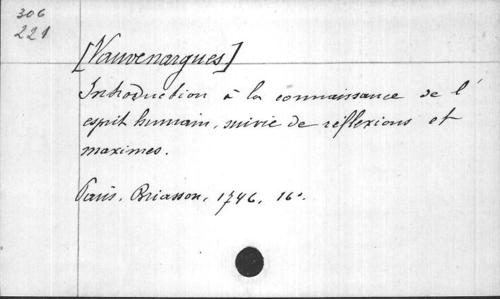 306
221
[Vauvenargues]
Introduction à la connaissance de l'
esprit humain, suivie de réflexions et
maximes.
Paris, Briasson, 1746, 16°.